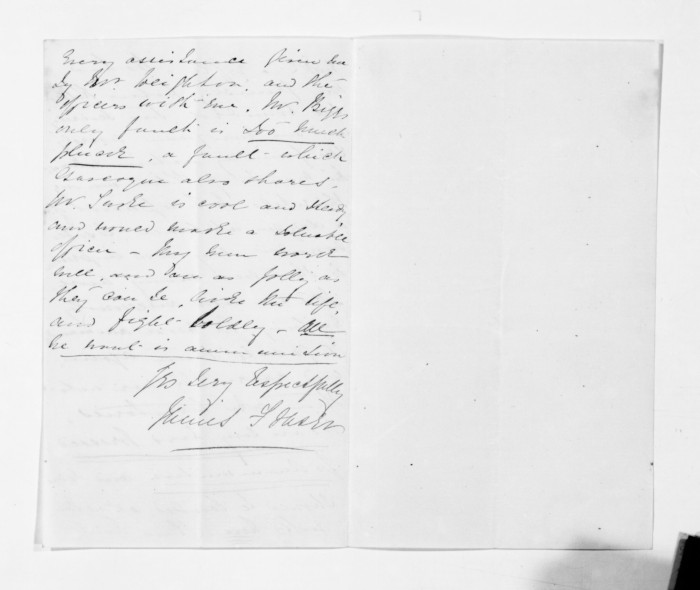 Every assistance given me
by Mr Leighton and the
officers with me. Mr Biggs
only fault is too much
pluck, a fault which
Gascoyne also shares.
Mr Tuke is cool and steady
and would make a valuable
officer – My men work
well, and are as jolly as
they can be, like the life,
and fight boldly. All
we want is ammunition
Yrs Very Respectfully
James Fraser